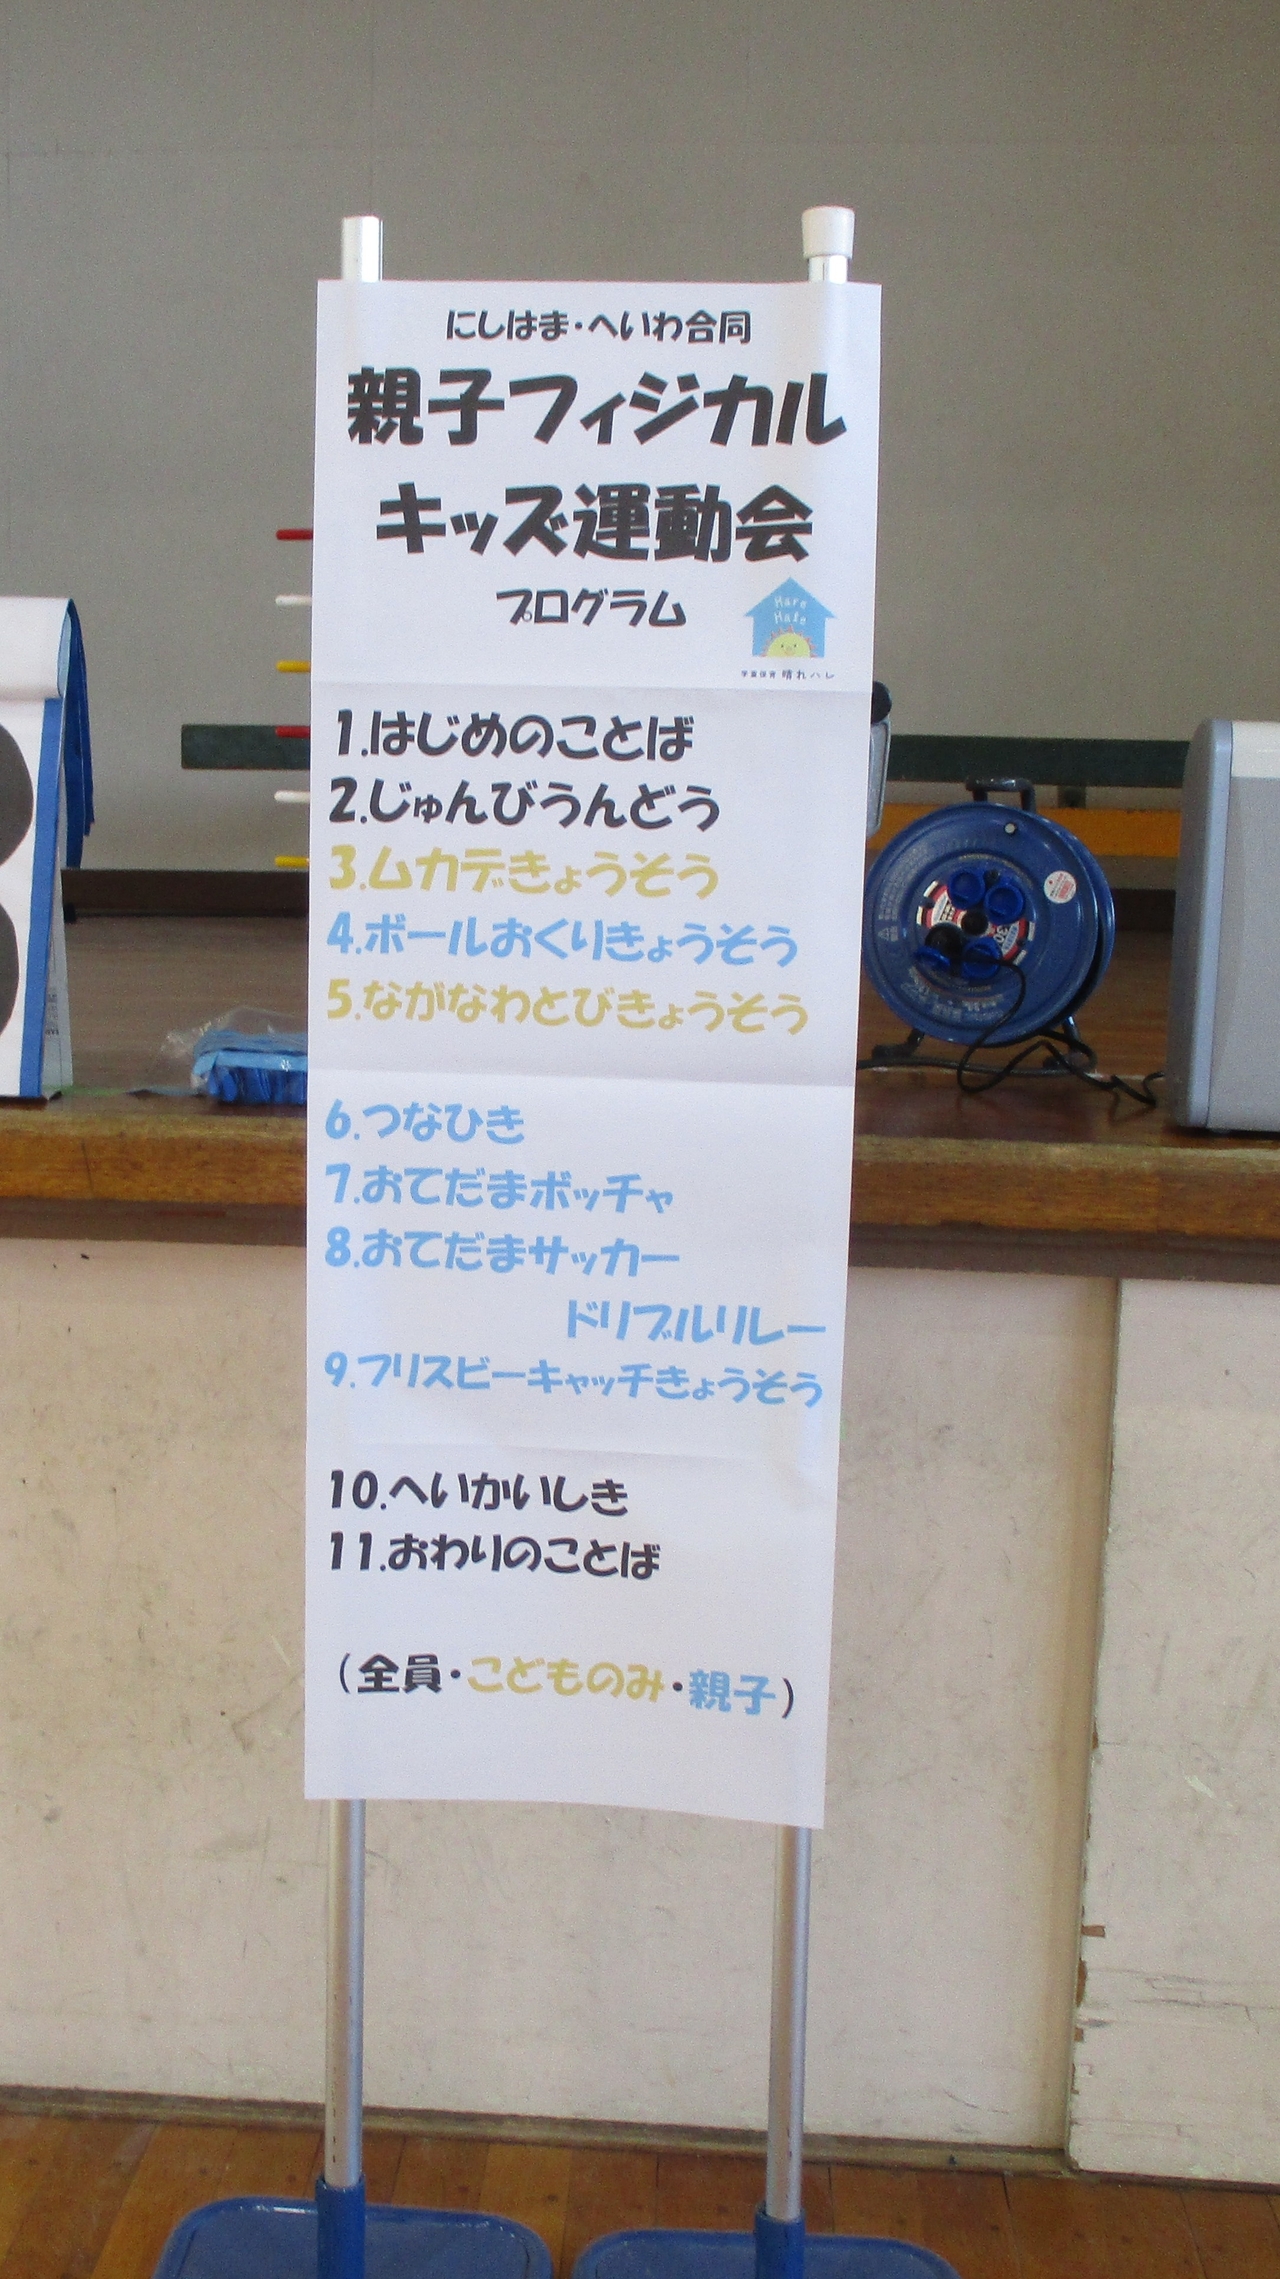 にしはま・へいわ合同
親子フィジカル
キッズ運動会
プログラム
Hare
Hale
学童保育 晴れハレ
1.はじめのことば
2.じゅんびうんどう
3.ムカデきょうそう
4.ボールおくりきょうそう
5.ながなわとびきょうそう
6.つなひき
7.おてだまボッチャ
8.おてだまサッカー
ドリブルリレー
9.フリスビーキャッチきょうそう
10.へいかいしき
11.おわりのことば
(全員・こどものみ・親子)
30